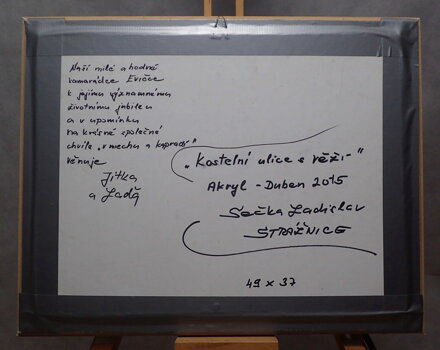 Naší milé a hodné
kamarádce Evičce
k jejímu významnému
životnímu jubileu
a v upomínku
na krásné společné
chvíle „v mechu a kapradí"
věnuje
Jitka
a Laďa
„Kostelní ulice s věží-"
Akryl - Duben 2015
Sečka Ladislav
STRÁŽNICE
49 x 37